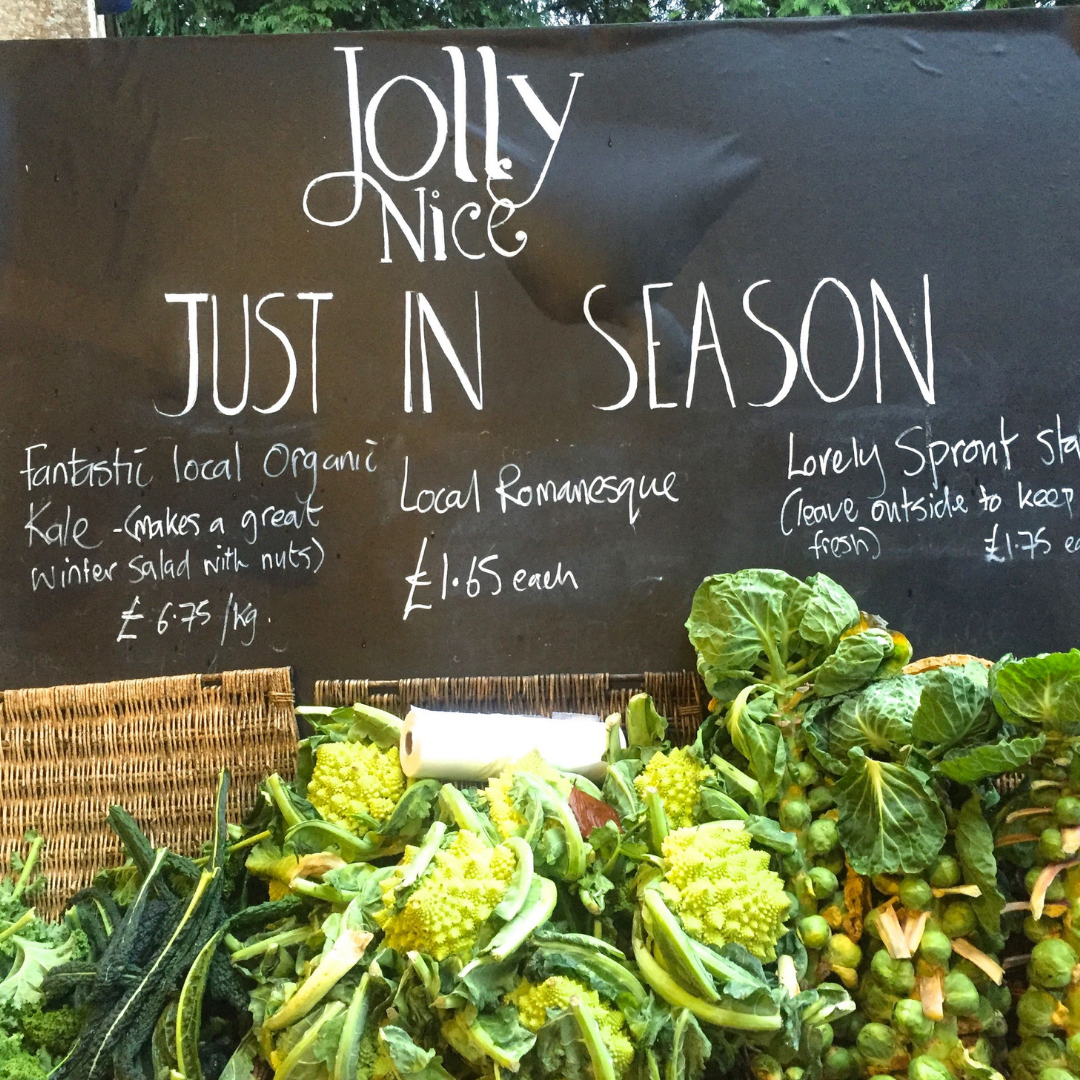 Jolly
Nice
JUST IN SEASON
Fantastic local Organic
Kale - (makes a great
winter salad with nuts)
£6.75/kg.
Local Romanesque
£1.65 each
Lovely Sprout
(leave outside to keep
fresh)
£1.75